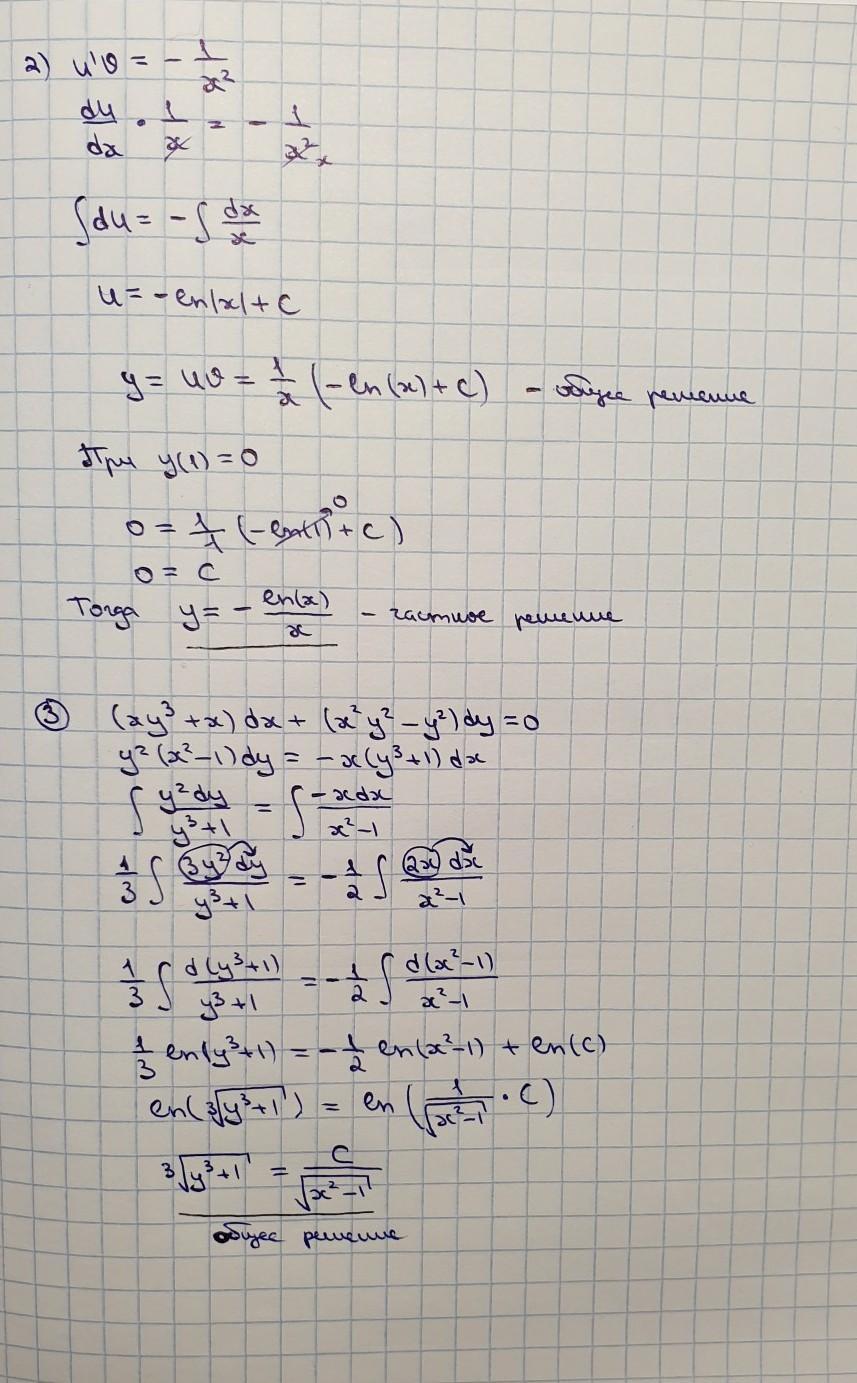 2) u'v = - 1/x²
du/dx · 1/x = - 1/x² x
∫du = -∫ dx/x
u = -ln|x| + C
y = uv = 1/x (-ln(x) + C) - общее решение
При y(1) = 0
0 = 1/1 (-ln(1) + C) 0
0 = C
Тогда y = - ln(x)/x - частное решение
③ (xy³ + x) dx + (x²y² - y²) dy = 0
y² (x² - 1) dy = -x(y³ + 1) dx
∫ y² dy/(y³ + 1) = ∫ -x dx/(x² - 1)
1/3 ∫ 3y² dy/(y³ + 1) = - 1/2 ∫ 2x dx/(x² - 1)
1/3 ∫ d(y³ + 1)/(y³ + 1) = - 1/2 ∫ d(x² - 1)/(x² - 1)
1/3 ln(y³ + 1) = - 1/2 ln(x² - 1) + ln(C)
ln(³√(y³ + 1)) = ln(1/√(x² - 1) · C)
³√(y³ + 1) = C/√(x² - 1)
общее решение